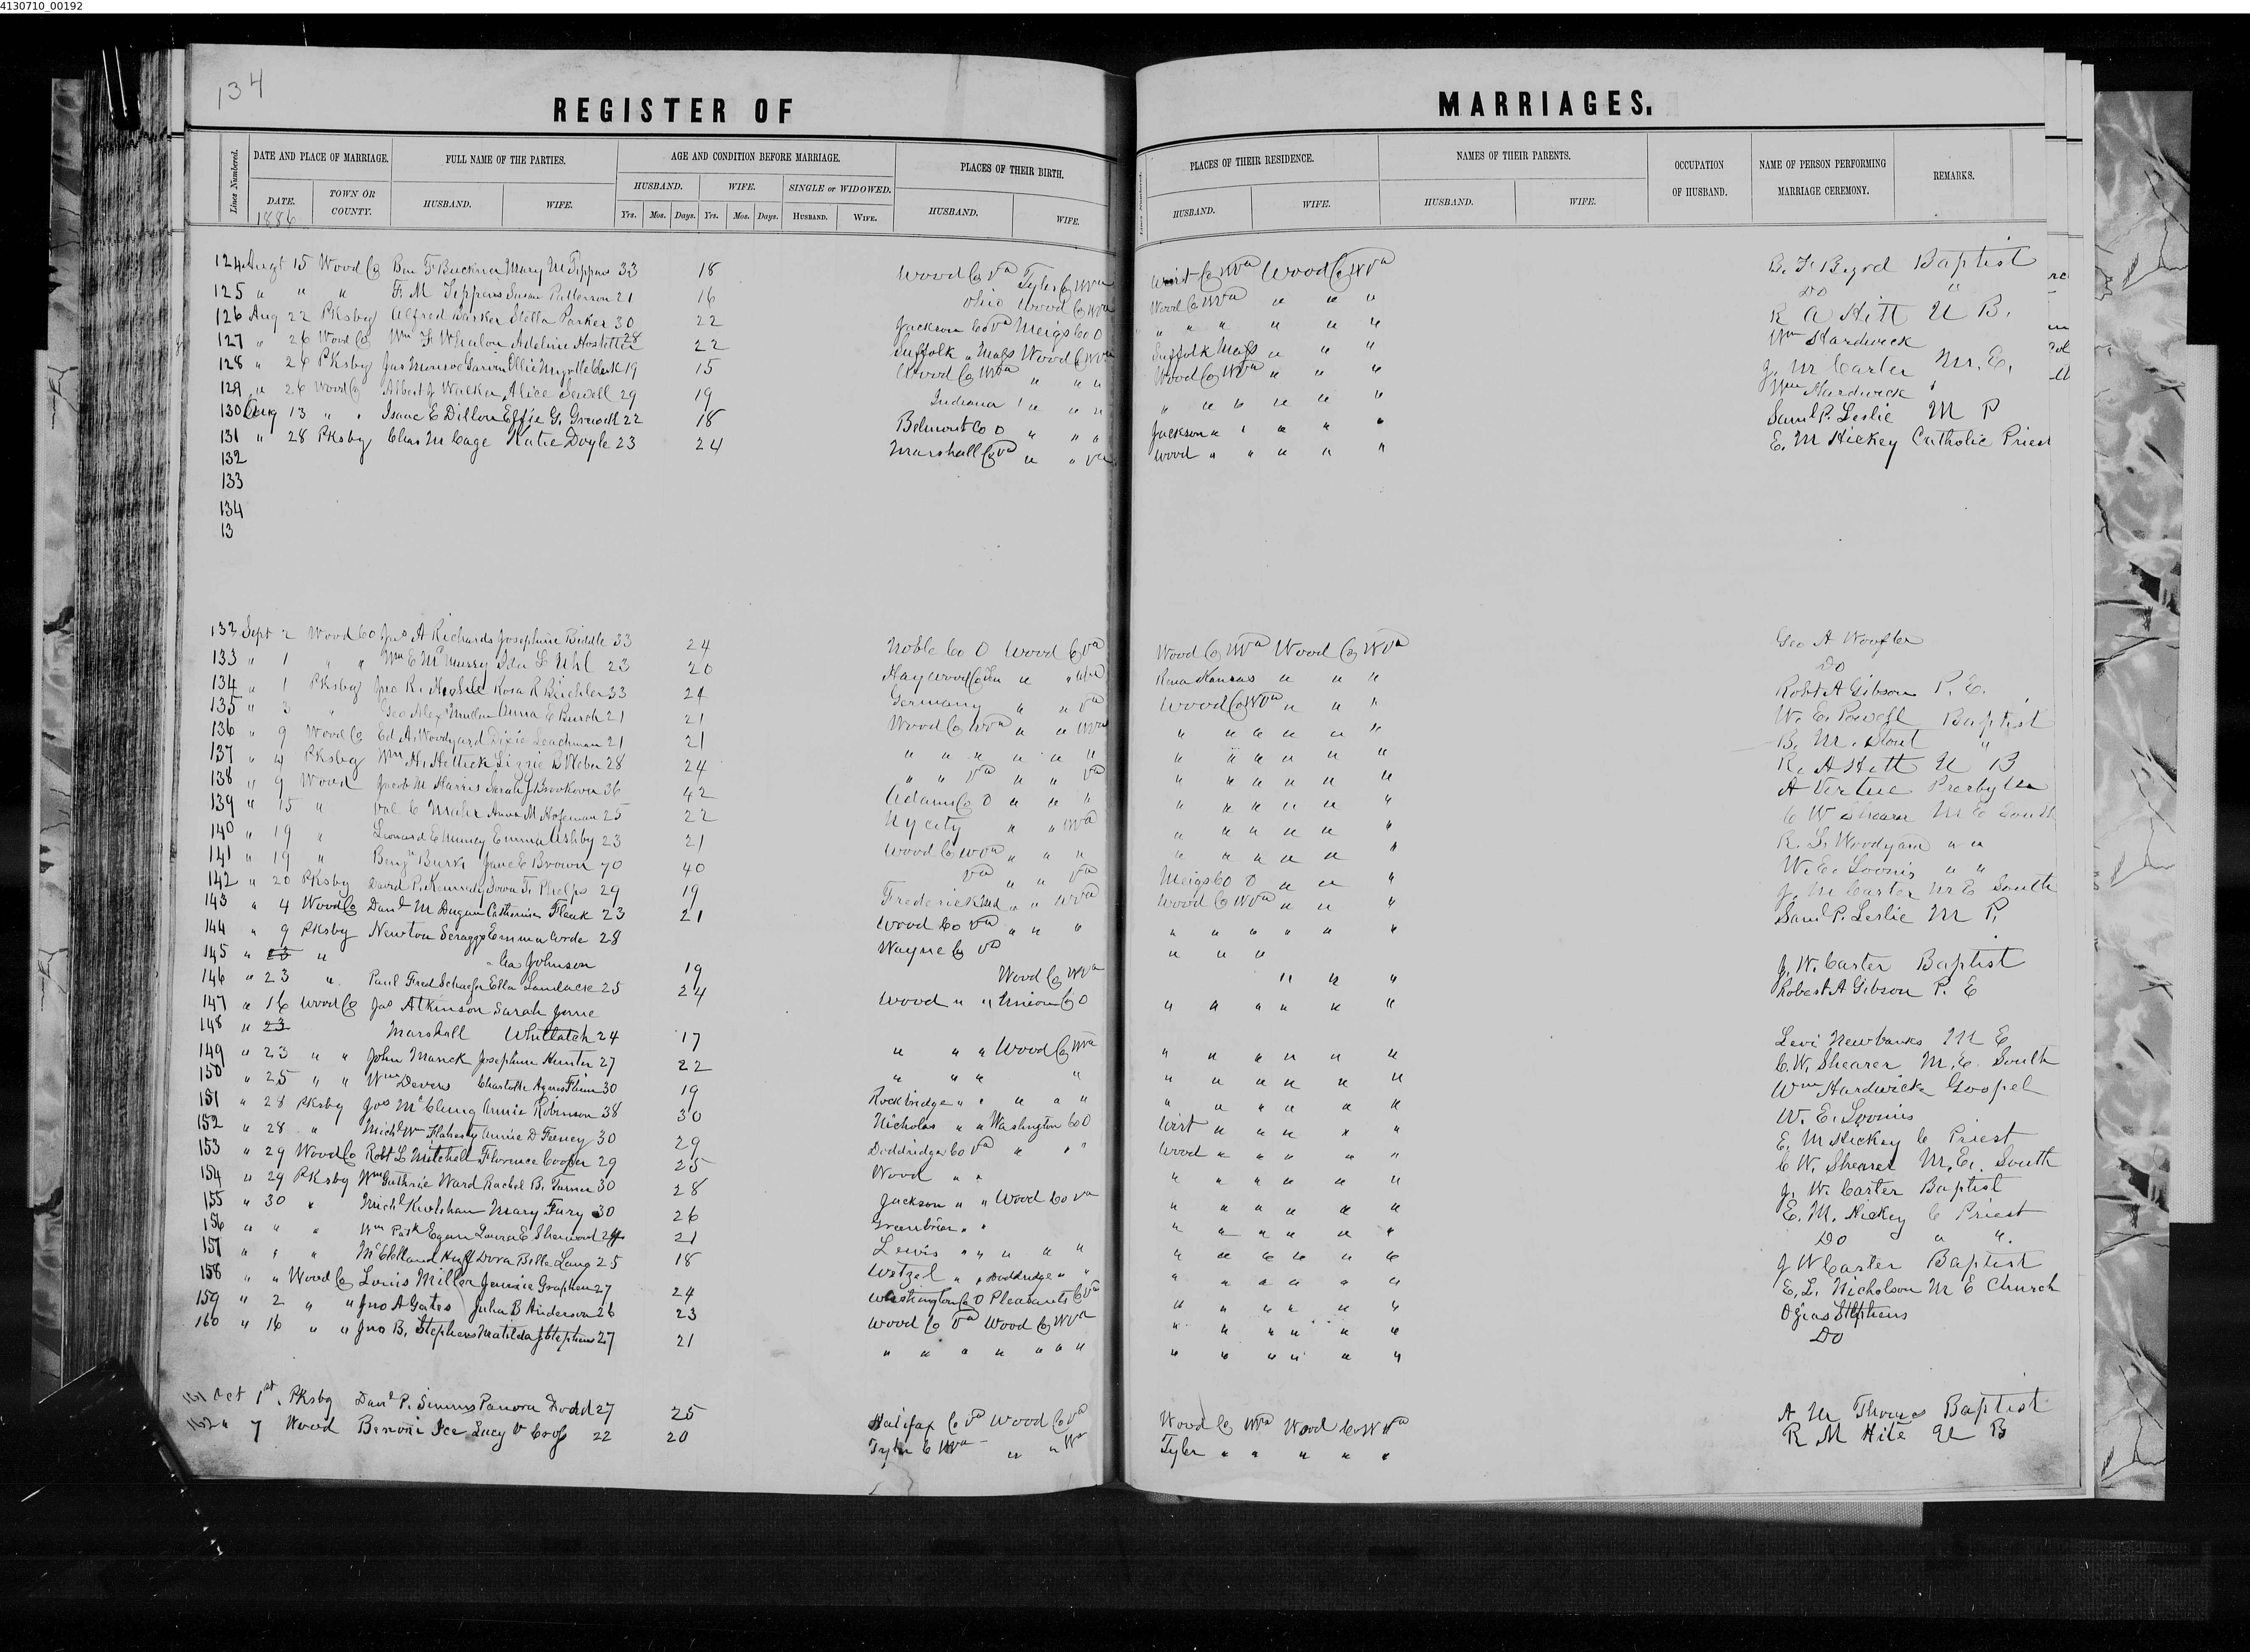 4130710_00192
134
REGISTER OF MARRIAGES.
Lines Numbered. DATE AND PLACE OF MARRIAGE. FULL NAME OF THE PARTIES. AGE AND CONDITION BEFORE MARRIAGE. PLACES OF THEIR BIRTH. Lines Numbered. PLACES OF THEIR RESIDENCE. NAMES OF THEIR PARENTS. OCCUPATION OF HUSBAND. NAME OF PERSON PERFORMING MARRIAGE CEREMONY. REMARKS.
DATE. TOWN OR COUNTY. HUSBAND. WIFE. HUSBAND. WIFE. SINGLE or WIDOWED. HUSBAND. WIFE. HUSBAND. WIFE. HUSBAND. WIFE.
1886 Yrs. Mos. Days. Yrs. Mos. Days. HUSBAND. WIFE.
124 Augt 15 Wood Co Ben F Buckner Mary M Tippens 33 18 Wood Co Va Tyler Co WVa Wirt Co WVa Wood Co WVa B. F. Byrd Baptist
125 " " " F. M Tippens Susan Patterson 21 16 Ohio Wood Co WVa Wood Co WVa " " " Do "
126 Aug 22 PKsbg Alfred Parker Stella Parker 30 22 Jackson Co Va Meigs Co O " " " " " " R A Hitt U B.
127 " 26 Wood Co Wm F Whalon Adaline Hostetter 28 22 Suffolk " Mass Wood Co WVa Suffolk Mass " " " Wm Hardwick
128 " 26 PKsbg Jas Monroe Garvin Ollie Myrtle Clark 19 15 Wood Co WVa " " " Wood Co WVa " " " J. M Carter M. E.
129 " 26 Wood Co Albert J Walker Alice Sewell 29 19 Indiana " " " " " " " " " Wm Hardwick
130 Aug 13 " " Isaac E Dillon Effie G. 22 18 Belmont Co O " " " Jackson " " " " " Saml P. Leslie M P
131 " 28 PKsby Chas M Cage Katie Doyle 23 24 Marshall Co Va " " Va Wood " " " " " E. M Hickey Catholic Priest
132
133
134
13
132 Sept 2 Wood Co Jas A Richards Josephine Biddle 33 24 Noble Co O Wood Co Va Wood Co WVa Wood Co WVa Geo A Woofter
133 " 1 " " Wm E McMurry Ida L Uhl 23 20 Haywood Co Ten " " WVa Kansas " " " Do
134 " 1 PKsbg Jno R. Rosa R 33 24 Germany " " Va Wood Co WVa " " " Robt A Gibson P. E.
135 " 3 " Geo Alex Mullen Anna E Burch 21 21 Wood Co WVa " " WVa " " " " " " W. E. Powell Baptist
136 " 9 Wood Co Ed A. Woodyard Dixie Leachman 21 21 " " " " " " " " " " " " B. M. Stout "
137 " 4 PKsbg Wm H. Hettick Lizzie B Weber 28 24 " " Va " " Va " " " " " " R. A Hitt U B
138 " 9 Wood Jacob M Harris Sarah J Brookover 36 42 Adams Co O " " " " " " " " " A Virtue Presbyter
139 " 15 " Val C Anna M Hofeman 25 22 N Y city " " WVa " " " " " " C W Shearer M E South
140 " 19 " Leonard E Muncy Emma Ashby 23 21 Wood Co WVa " " " " " " " " " R. L. Woodyard " "
141 " 19 " Benj Burk Jane E Brown 70 40 Va " " Va " " " " " " W. E. Loomis " "
142 " 20 PKsbg David P. Kennedy Iowa F. Phelps 29 19 Frederick Md " " WVa Meigs Co O " " " J. M Carter M E South
143 " 4 Wood Co Danl M Dugan Catherine Fleak 23 21 Wood Co Va " " " Wood Co WVa " " " Saml P. Leslie M P.
144 " 9 PKsbg Newton Scraggs Emma Corde 28 Wayne Co Va " " " " " "
145 " 23 " Johnson 19 Wood Co WVa " " " J. W. Carter Baptist
146 " 23 " Paul Fred Schaefer Ella Landack 25 24 Wood " " Union Co O " " " Robert A Gibson P. E
147 " 16 Wood Co Jas Atkinson Sarah Jane " " " " " "
148 " 23 Marshall Whitlatch 24 17 " " " Wood Co WVa Levi Newbanks M E
149 " 23 " " John Manck Josephine Hunter 27 22 " " " " " " " " " " C. W. Shearer M. E. South
150 " 25 " " Wm Devers Charlotte Agnes Flinn 30 19 Rockbridge " " " " " " " " " " " Wm Hardwick Gospel
151 " 28 PKsby Jos McClung Annie Robinson 38 30 Nicholas " " Washington Co O " " " " " " W. E. Loomis
152 " 28 " Michl Wm Flaherty Annie D Feeney 30 29 Doddridge Co Va " " Wirt " " " " " E. M Hickey C Priest
153 " 29 Wood Co Robt L Mitchell Florence Cooper 29 25 Wood " " Wood " " " " " C. W. Shearer M. E. South
154 " 29 PKsby Wm Guthrie Ward Rachel B. Turner 30 28 Jackson " " Wood Co Va " " " " " " J. W. Carter Baptist
155 " 30 " Michl Mary Fury 30 26 Greenbrier " " " " " " " " E. M. Hickey C Priest
156 " " " Wm Patk Egan Laura E Sherwood 24 21 Lewis " " " " " " " " " " " Do " "
157 " " " McClelland Huff Dora Belle Lang 25 18 Wetzel " " Doddridge " " " " " " " " J W Carter Baptist
158 " " Wood Co Louis Miller Jennie Graphen 27 24 Washington Co O Pleasants Co Va " " " " " " E. L. Nicholson M E Church
159 " 2 " " Jno A Gates Julia B Anderson 26 23 Wood Co Va Wood Co WVa " " " " " " Stephens
160 " 16 " " Jno B. Stephens Matilda J Stephens 27 21 " " " " " " " " " " " " " Do
161 Oct 1st PKsbg Danl P. Simms Panora Dodd 27 25 Halifax Co Va Wood Co Va Wood Co WVa Wood Co WVa A M Thomas Baptist
162 " 7 Wood Benoni Ice Lucy V Cross 22 20 Tyler C WVa " " WVa Tyler " " " " " R M Hite U B